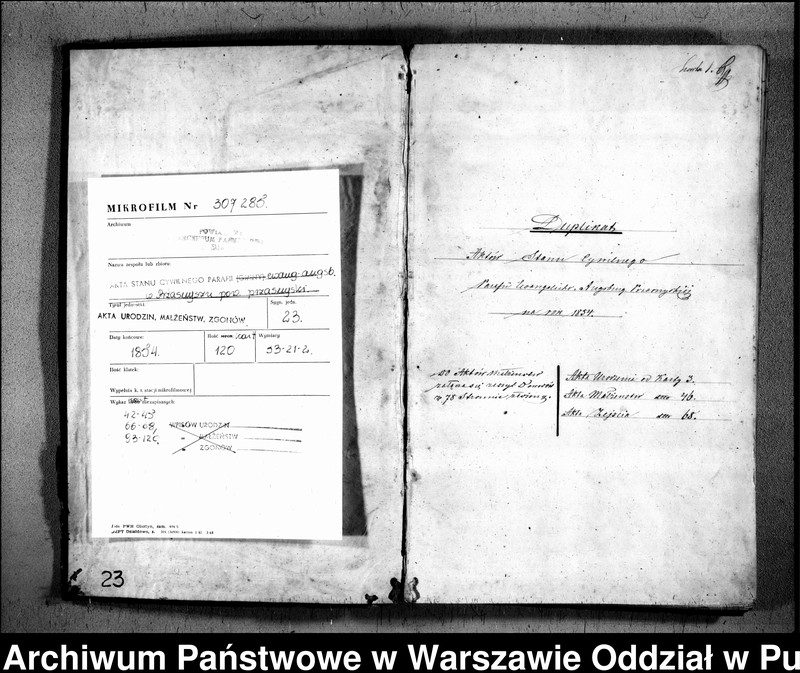 MIKROFILM Nr 307285.
Archiwum
Nazwa zespołu lub zbioru
AKTA STANU CYWILNEGO PARAFII ewang-augsb.
w Przasnyszu pow. przasnyski.
Tytuł jedn.
Sygn. jedn.
AKTA URODZIN, MAŁŻEŃSTW, ZGONÓW
23.
Daty końcowe:
1834.
Ilość kart
120
Wymiary:
33-21-2.
Ilość klatek:
Wypełnia k. z stacji mikrofilmowej
Wykaz niezapisanych
42-45
66-68,
93-120,
WPISÓW URODZIN
" MAŁŻEŃSTW
" ZGONÓW
23
Duplikat
Aktów Stanu Cywilnego
Parafii Evangelicko Augsburg Przasnyskiej
na rok 1834.
do Aktów Małżeństw
w 78 Stronnic
Akta Urodzenia od Karty 3.
Akta Małżeństw 46.
Akta Zejścia 68.
Archiwum Państwowe w Warszawie Oddział w Pu